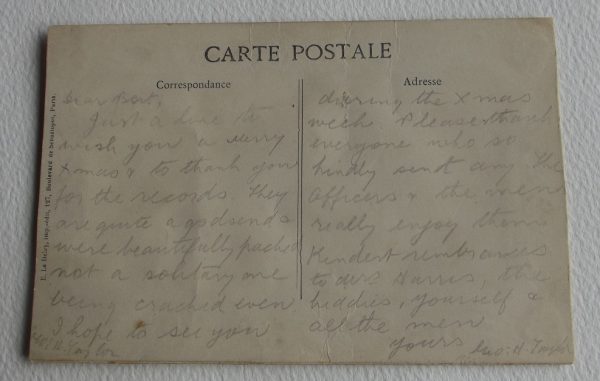 CARTE POSTALE
Correspondance
Adresse
E. Le Deley, imp.-édit., 127, Boulevard de Sébastopol, Paris.
Dear Bert,
Just a line to
wish you a merry
Xmas & to thank you
for the records they
are quite a godsend &
were beautifully packed
not a solitary one
being cracked even
I hope to see you
during the Xmas
week. Please thank
everyone who so
kindly sent any the
Officers & the men
really enjoy them
Kindest rembrances
to Mrs Harris, the
kiddies, yourself &
all the men
yours
Geo: H. Taylor
H. Taylor